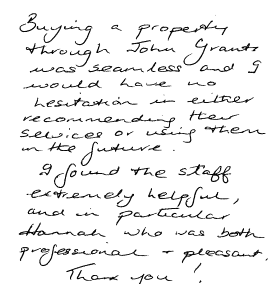 Buying a property
through John Grants
was seamless and I
would have no
hesitation in either
recommending their
services or using them
in the future.
I found the staff
extremely helpful,
and in particular
Hannah who was both
professional + pleasant.
Thank you !